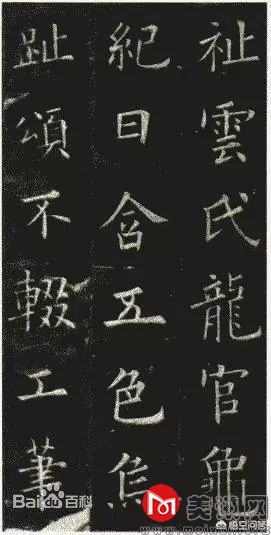 祉雲氏龍官龜
紀日含五色烏
趾頌不輟工筆
Bai百科
悟空问答